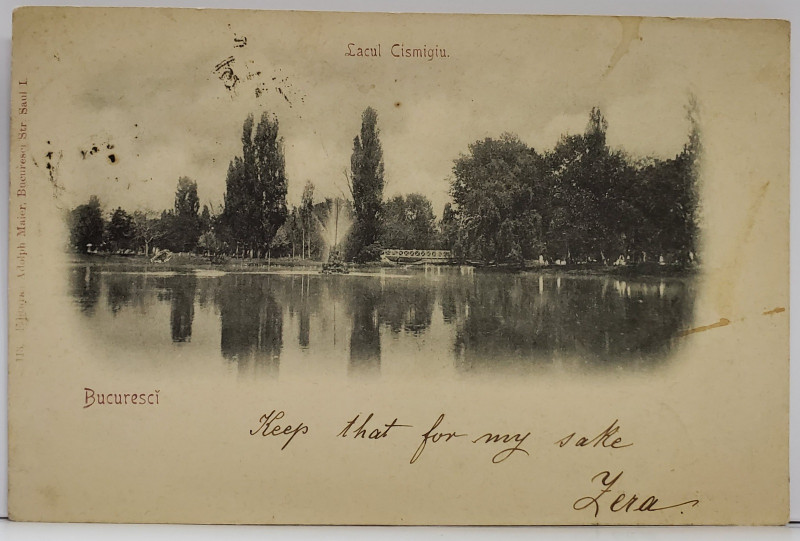 Lacul Cismigiu.
Adolph Maier, Bucuresci Str. Saul I.
Bucurescĭ
Keep that for my sake
Zera.